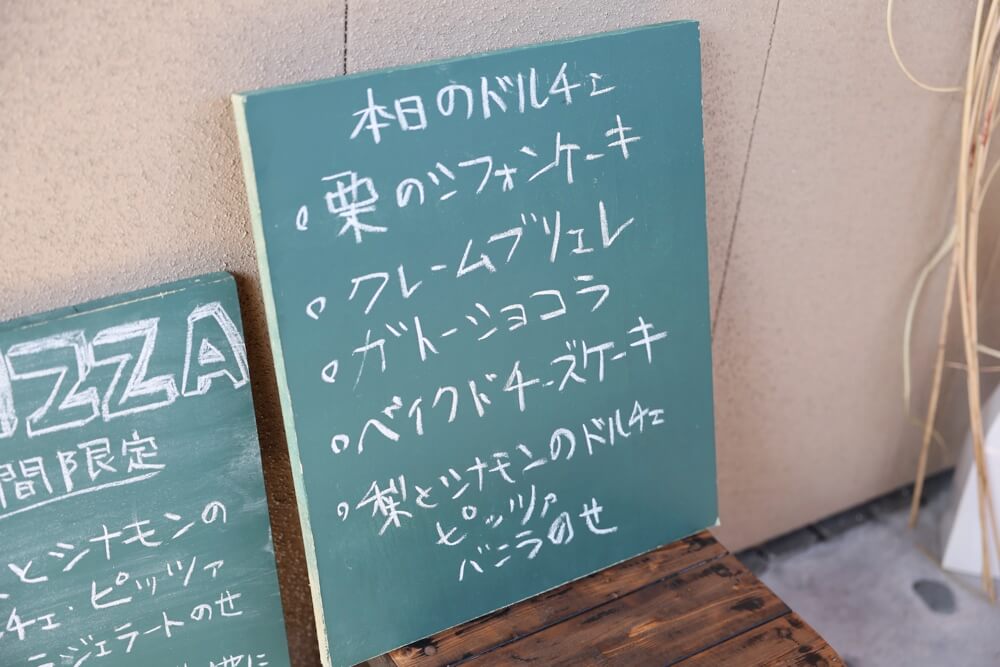 本日のドルチェ
栗のシフォンケーキ
クレームブリュレ
ガトーショコラ
ベイクドチーズケーキ
梨とシナモンのドルチェ
ピッツァ
バニラのせ
ZZA
間限定
とシナモンの
チェ・ピッツァ
ジェラートのせ